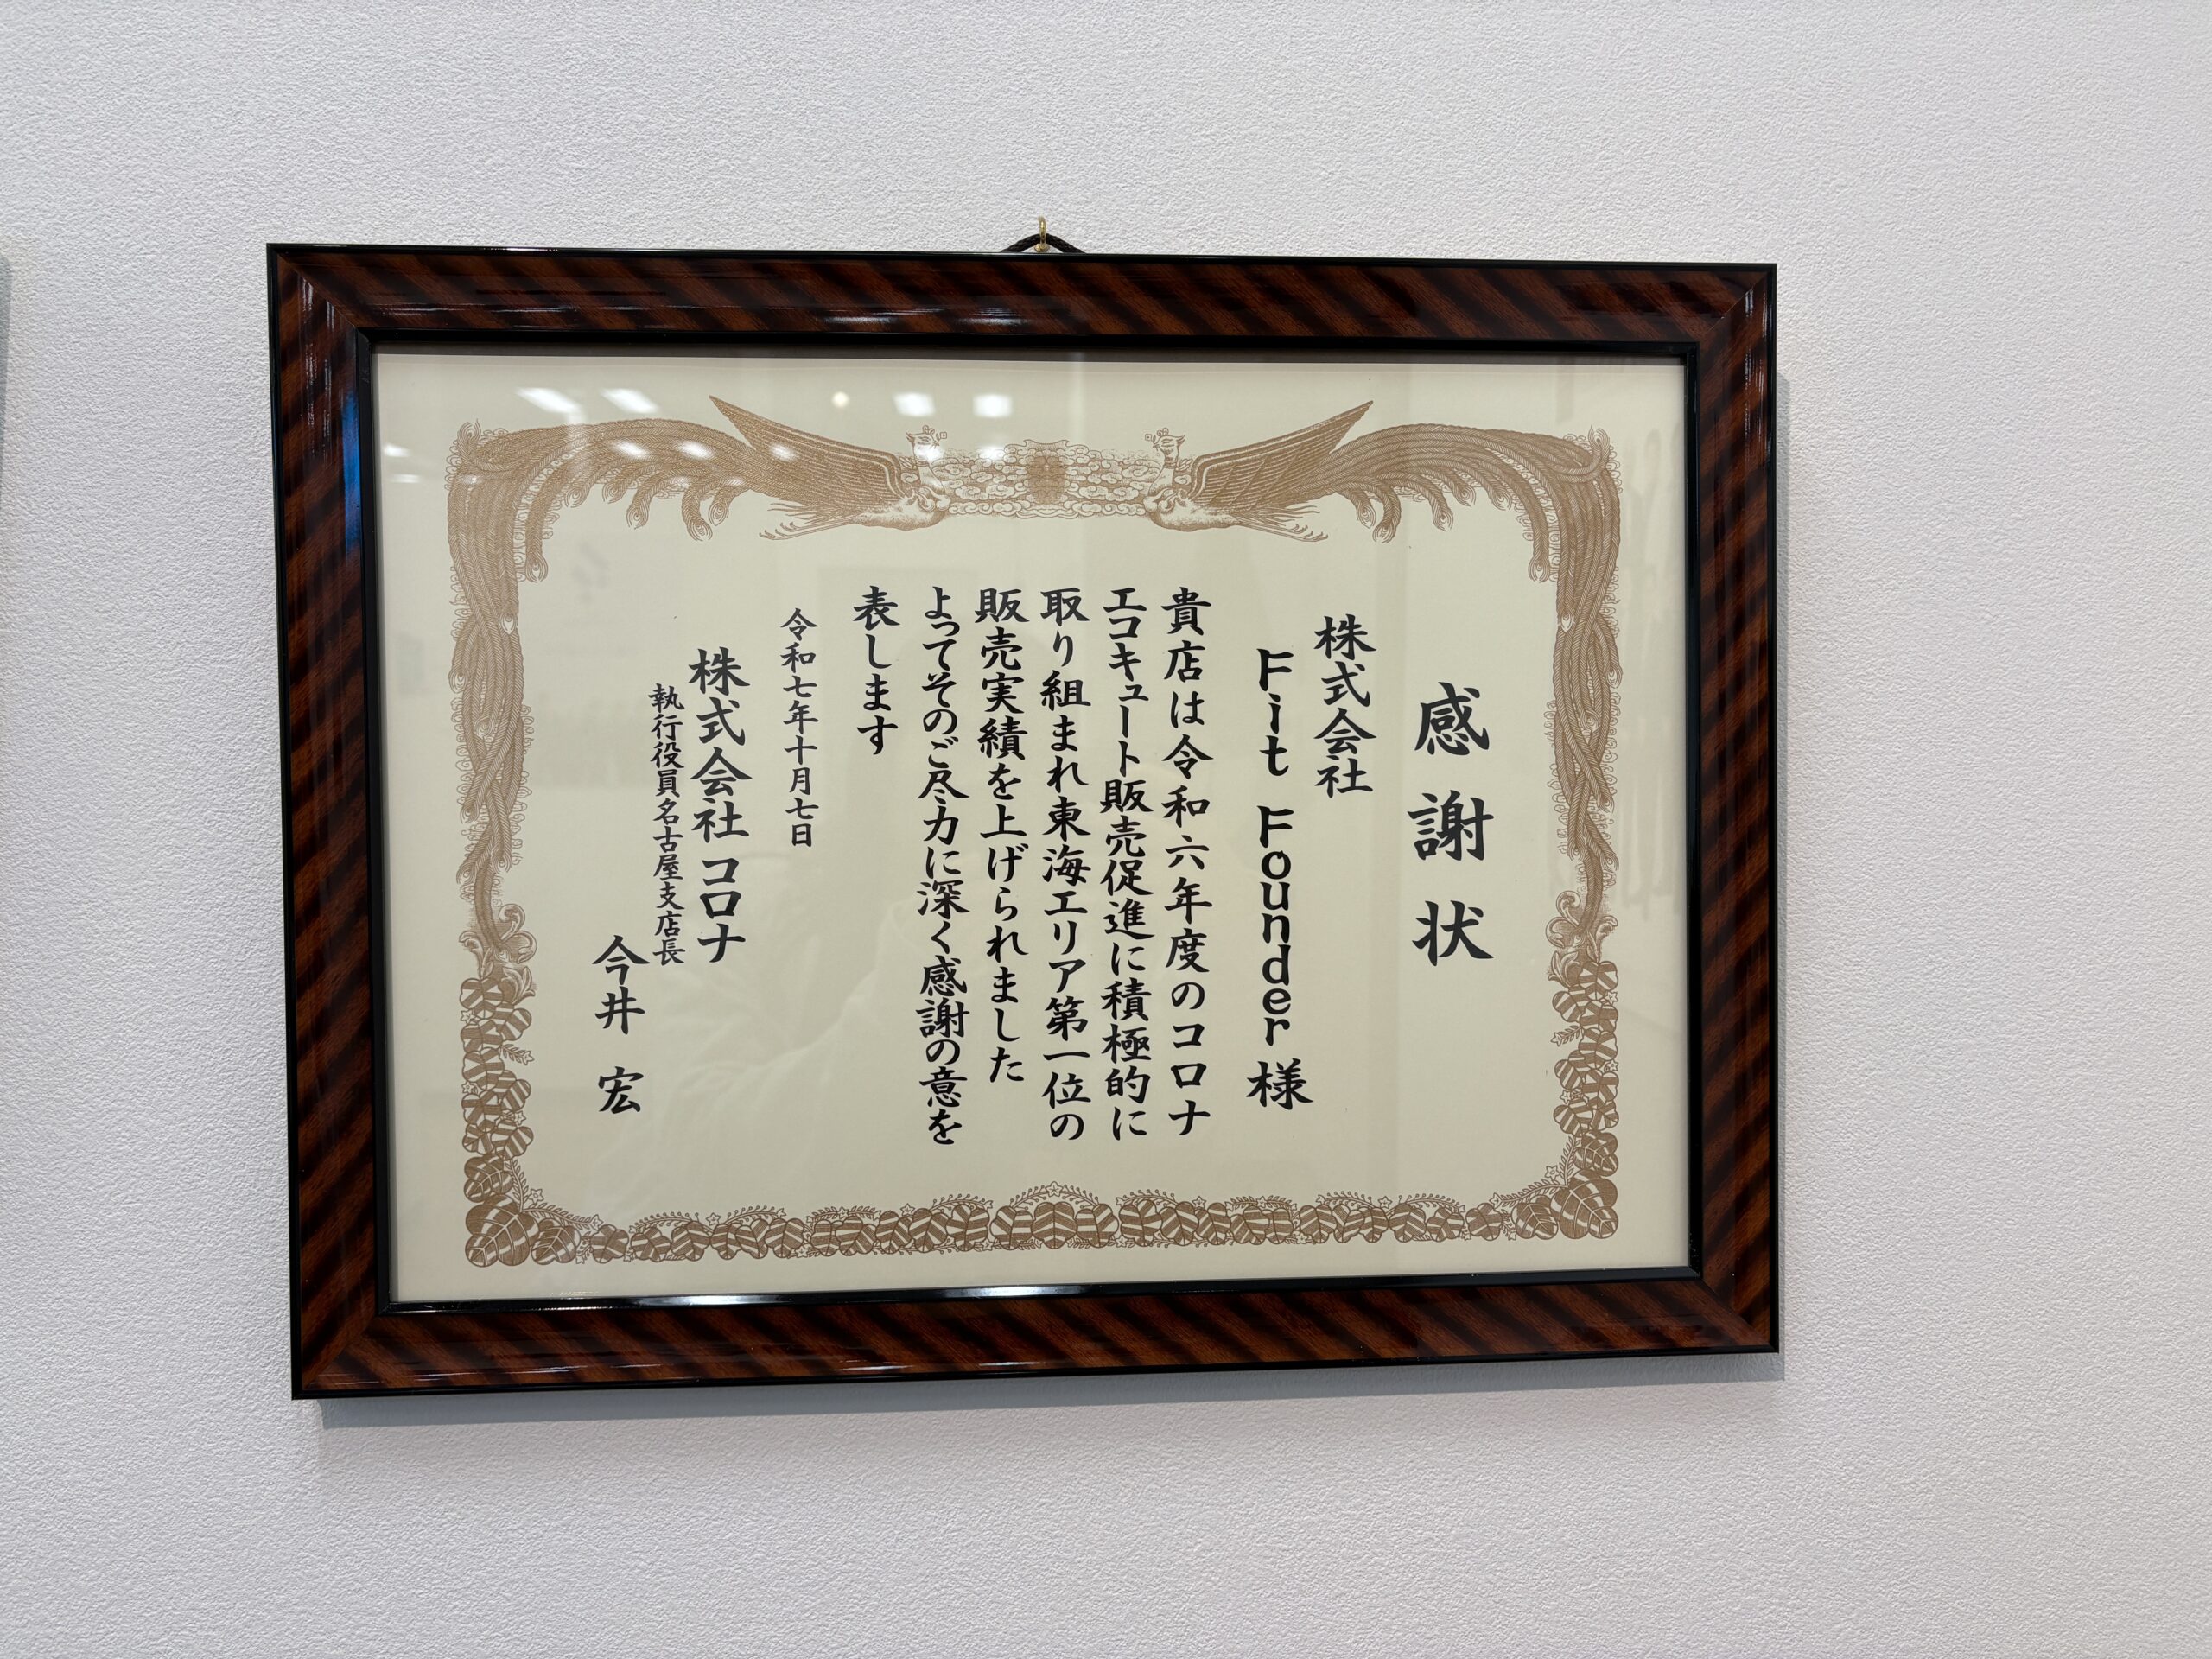 感謝状
株式会社
Fit Founder 様
貴店は令和六年度のコロナ
エコキュート販売促進に積極的に
取り組まれ東海エリア第一位の
販売実績を上げられました
よってそのご尽力に深く感謝の意を
表します
令和七年十月七日
株式会社コロナ
執行役員名古屋支店長
今井 宏